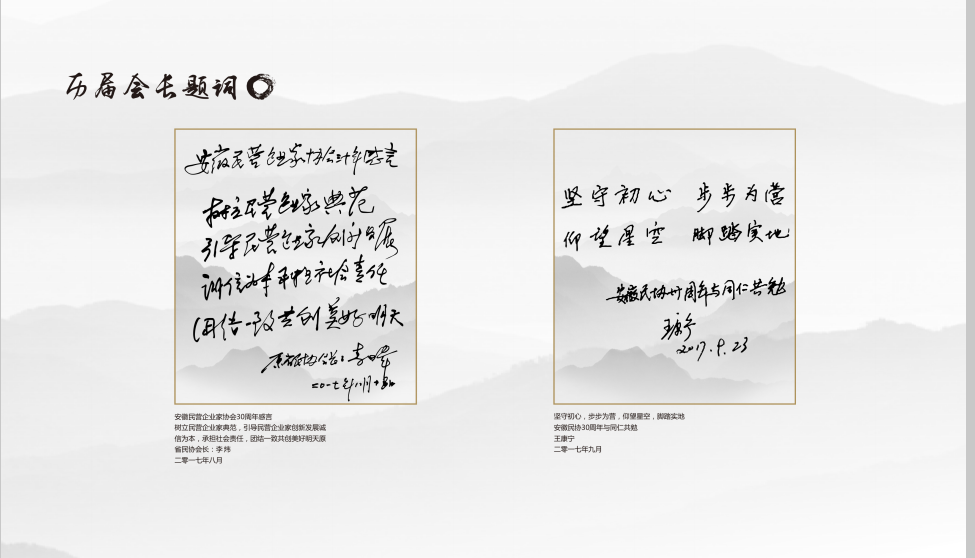 历届会长题词
安徽民营企业家协会三十年感言
树立民营企业家典范
引导民营企业家创新发展
诚信为本承担社会责任
团结一致共创美好明天
二〇一七年八月
安徽民营企业家协会30周年感言
树立民营企业家典范，引导民营企业家创新发展诚
信为本，承担社会责任，团结一致共创美好明天原
省民协会长：李 炜
二零一七年八月
坚守初心 步步为营
仰望星空 脚踏实地
安徽民协卅周年与同仁共勉
王康宁
2017.9.23
坚守初心，步步为营，仰望星空，脚踏实地
安徽民协30周年与同仁共勉
王康宁
二零一七年九月